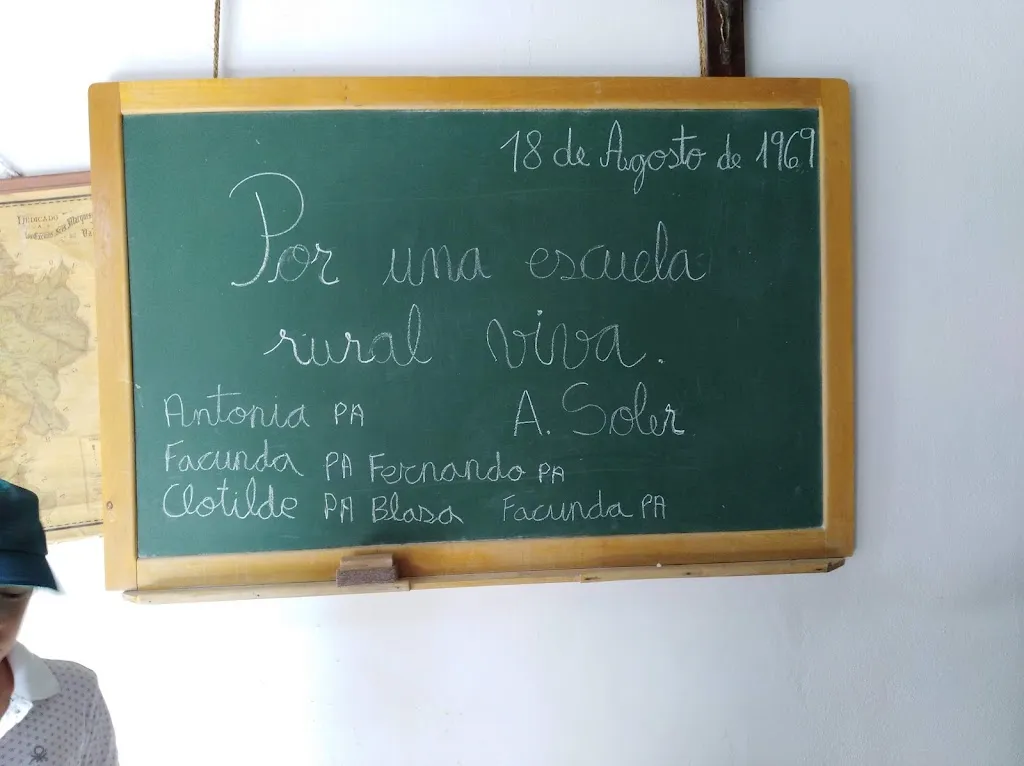 18 de Agosto de 1969
Por una escuela
rural viva.
A. Soler
Antonia PA
Facunda PA Fernando PA
Clotilde PA Blasa Facunda PA
DEDICADO